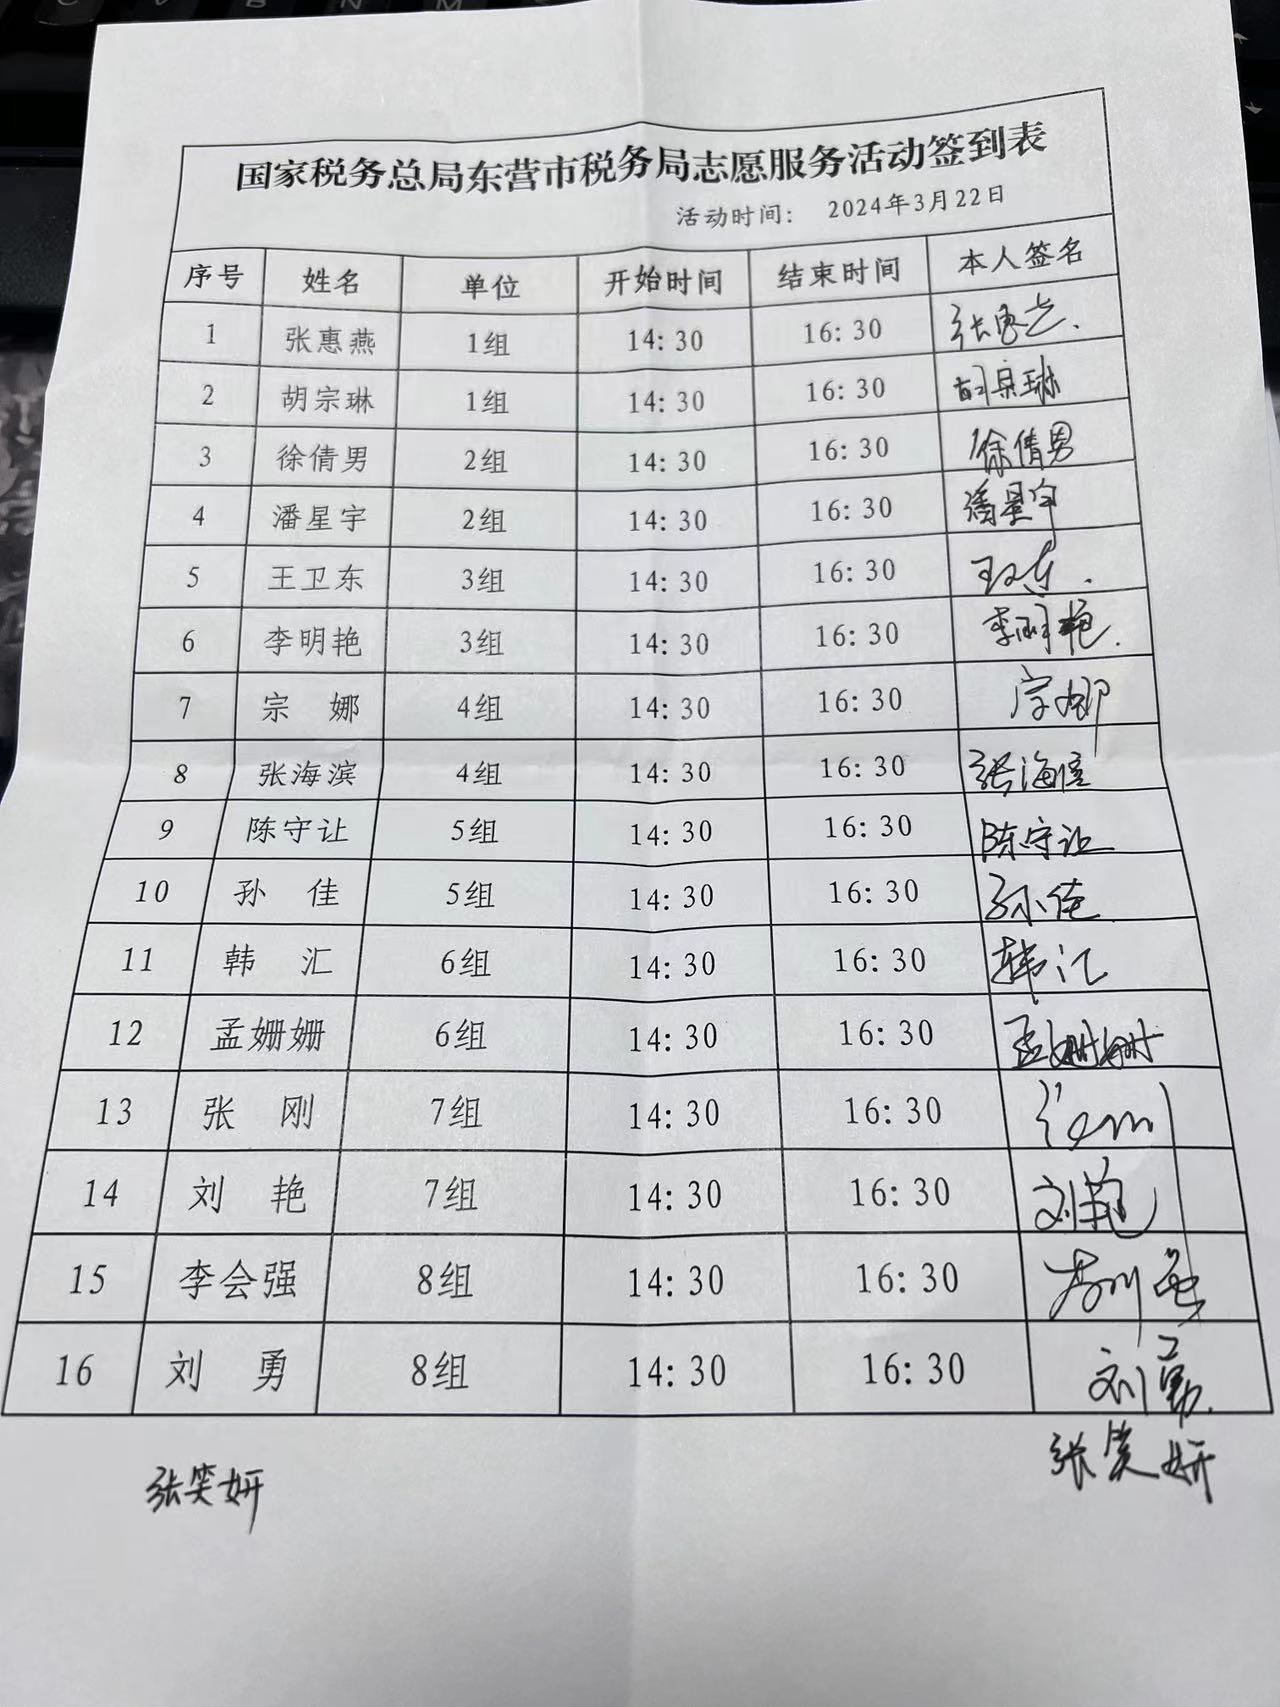 国家税务总局东营市税务局志愿服务活动签到表
活动时间： 2024年3月22日
序号 姓名 单位 开始时间 结束时间 本人签名
1 张惠燕 1组 14:30 16:30
2 胡宗琳 1组 14:30 16:30 胡宗琳
3 徐倩男 2组 14:30 16:30 徐倩男
4 潘星宇 2组 14:30 16:30 潘星宇
5 王卫东 3组 14:30 16:30 王卫东
6 李明艳 3组 14:30 16:30 李明艳
7 宗 娜 4组 14:30 16:30 宗娜
8 张海滨 4组 14:30 16:30 张海滨
9 陈守让 5组 14:30 16:30 陈守让
10 孙 佳 5组 14:30 16:30 孙佳
11 韩 汇 6组 14:30 16:30 韩汇
12 孟姗姗 6组 14:30 16:30 孟姗姗
13 张 刚 7组 14:30 16:30
14 刘 艳 7组 14:30 16:30 刘艳
15 李会强 8组 14:30 16:30
16 刘 勇 8组 14:30 16:30 刘勇
张笑妍 张笑妍